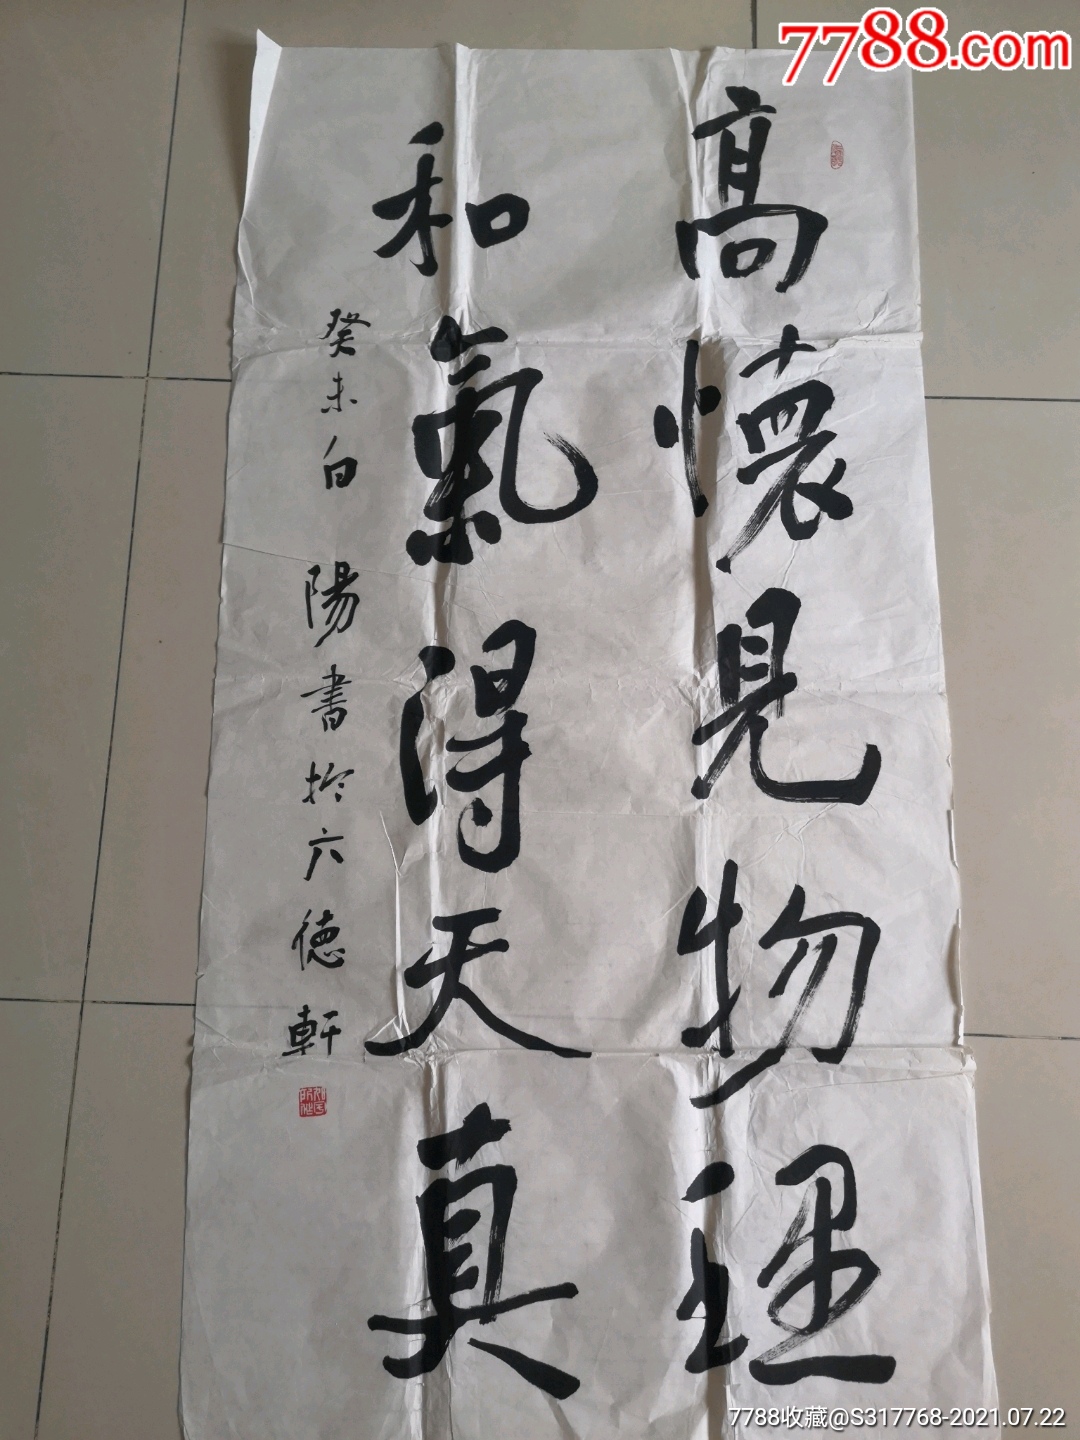 7788.com
高懷見物理
和氣得天真
癸未白陽書於六德軒
7788收藏@S317768-2021.07.22